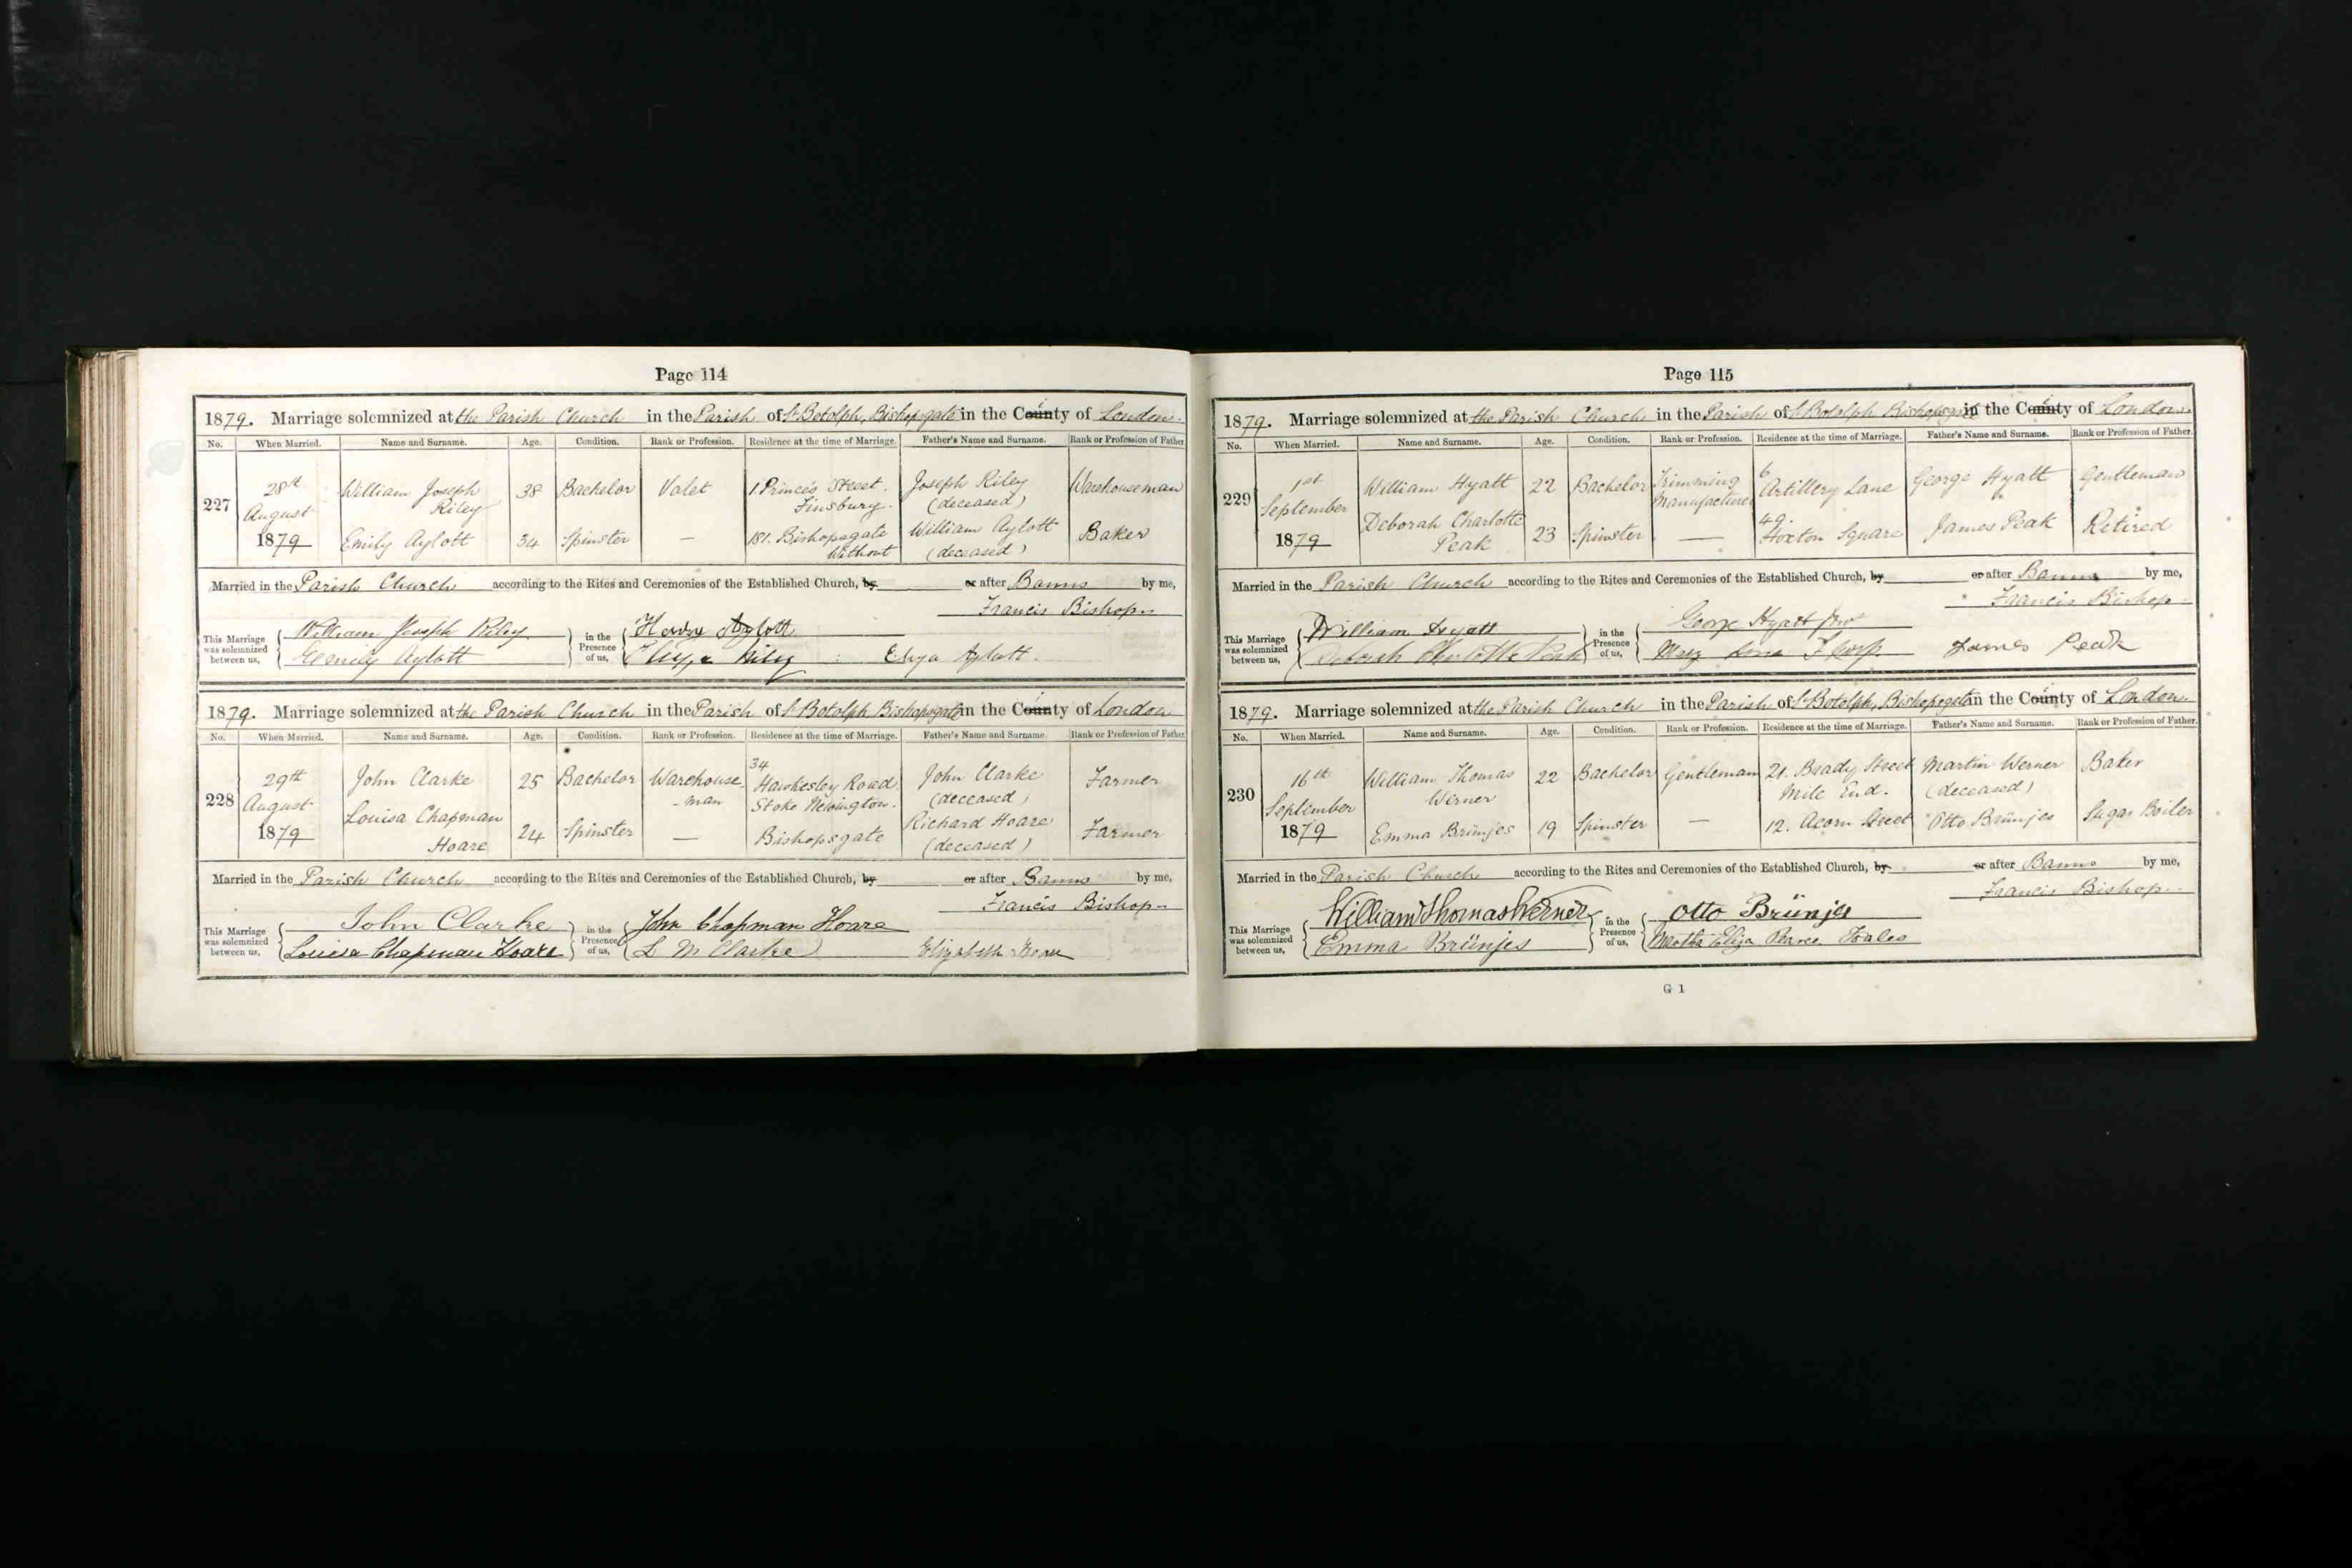 Page 114
1879. Marriage solemnized at the Parish Church in the Parish of St Botolph, Bishopsgate in the County of London.
No. When Married. Name and Surname. Age. Condition. Rank or Profession. Residence at the time of Marriage. Father's Name and Surname. Rank or Profession of Father.
227 28th August 1879
William Joseph Riley 38 Bachelor Valet 1. Princes Street. Finsbury. Joseph Riley (deceased) Warehouseman
Emily Aylott 34 Spinster — 181. Bishopsgate Without William Aylott (deceased) Baker
Married in the Parish Church according to the Rites and Ceremonies of the Established Church, by or after Banns by me,
Francis Bishop
This Marriage was solemnized between us, William Joseph Riley
Emily Aylott
in the Presence of us, Aylott
Riley Eliza Aylott
1879. Marriage solemnized at the Parish Church in the Parish of St Botolph Bishopsgate in the County of London
No. When Married. Name and Surname. Age. Condition. Rank or Profession. Residence at the time of Marriage. Father's Name and Surname. Rank or Profession of Father
228 29th August 1879
John Clarke 25 Bachelor Warehouse-man 34 Hawkesley Road Stoke Newington. John Clarke (deceased) Farmer
Louisa Chapman Hoare 24 Spinster — Bishopsgate Richard Hoare (deceased) Farmer
Married in the Parish Church according to the Rites and Ceremonies of the Established Church, by or after Banns by me,
Francis Bishop
This Marriage was solemnized between us, John Clarke
Louisa Chapman Hoare
in the Presence of us, John Chapman Hoare
L M Clarke Elizabeth
Page 115
1879. Marriage solemnized at the Parish Church in the Parish of St Botolph Bishopsgate in the County of London.
No. When Married. Name and Surname. Age. Condition. Rank or Profession. Residence at the time of Marriage. Father's Name and Surname. Rank or Profession of Father.
229 1st September 1879
William Hyatt 22 Bachelor Trimming Manufacturer 6 Artillery Lane George Hyatt Gentleman
Deborah Charlotte Peak 23 Spinster — 49. Hoxton Square James Peak Retired
Married in the Parish Church according to the Rites and Ceremonies of the Established Church, by or after Banns by me,
Francis Bishop
This Marriage was solemnized between us, William Hyatt
Deborah Charlotte Peak
in the Presence of us, George Hyatt
James Peak
1879. Marriage solemnized at the Parish Church in the Parish of St Botolph, Bishopsgate in the County of London.
No. When Married. Name and Surname. Age. Condition. Rank or Profession. Residence at the time of Marriage. Father's Name and Surname. Rank or Profession of Father.
230 16th September 1879
William Thomas Werner 22 Bachelor Gentleman 21. Brady Street Mile End. Martin Werner (deceased) Baker
Emma Brünjes 19 Spinster — 12. Acorn Street Otto Brünjes Sugar Boiler
Married in the Parish Church according to the Rites and Ceremonies of the Established Church, by or after Banns by me,
Francis Bishop
This Marriage was solemnized between us, William Thomas Werner
Emma Brünjes
in the Presence of us, Otto Brünjes
Martha Eliza Pearce Hales
G 1